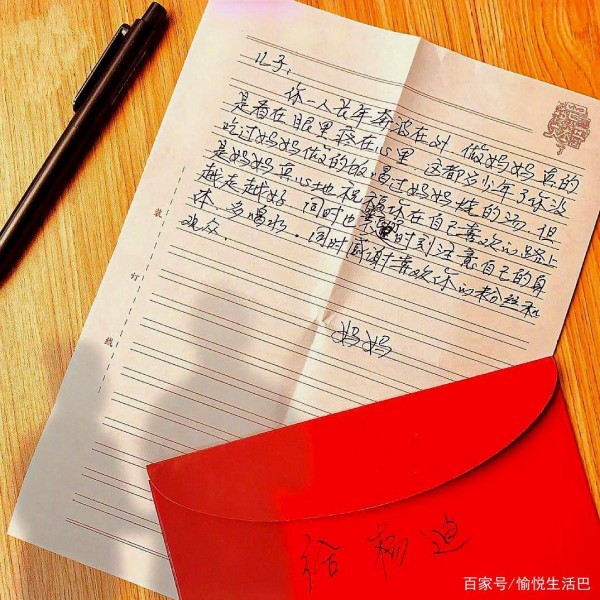 儿子,
你一人长年奔波在外 做妈妈真的
是看在眼里疼在心里 这都多少年了你没
吃过妈妈做的饭,喝过妈妈烧的汤.但
是妈妈真心地祝福你在自己喜欢的路上
越走越好 同时也时刻注意自己的身
体、多喝水.同时感谢喜欢你的粉丝和
观众.
妈妈
装
订
线
给杨迪
百家号/愉悦生活巴